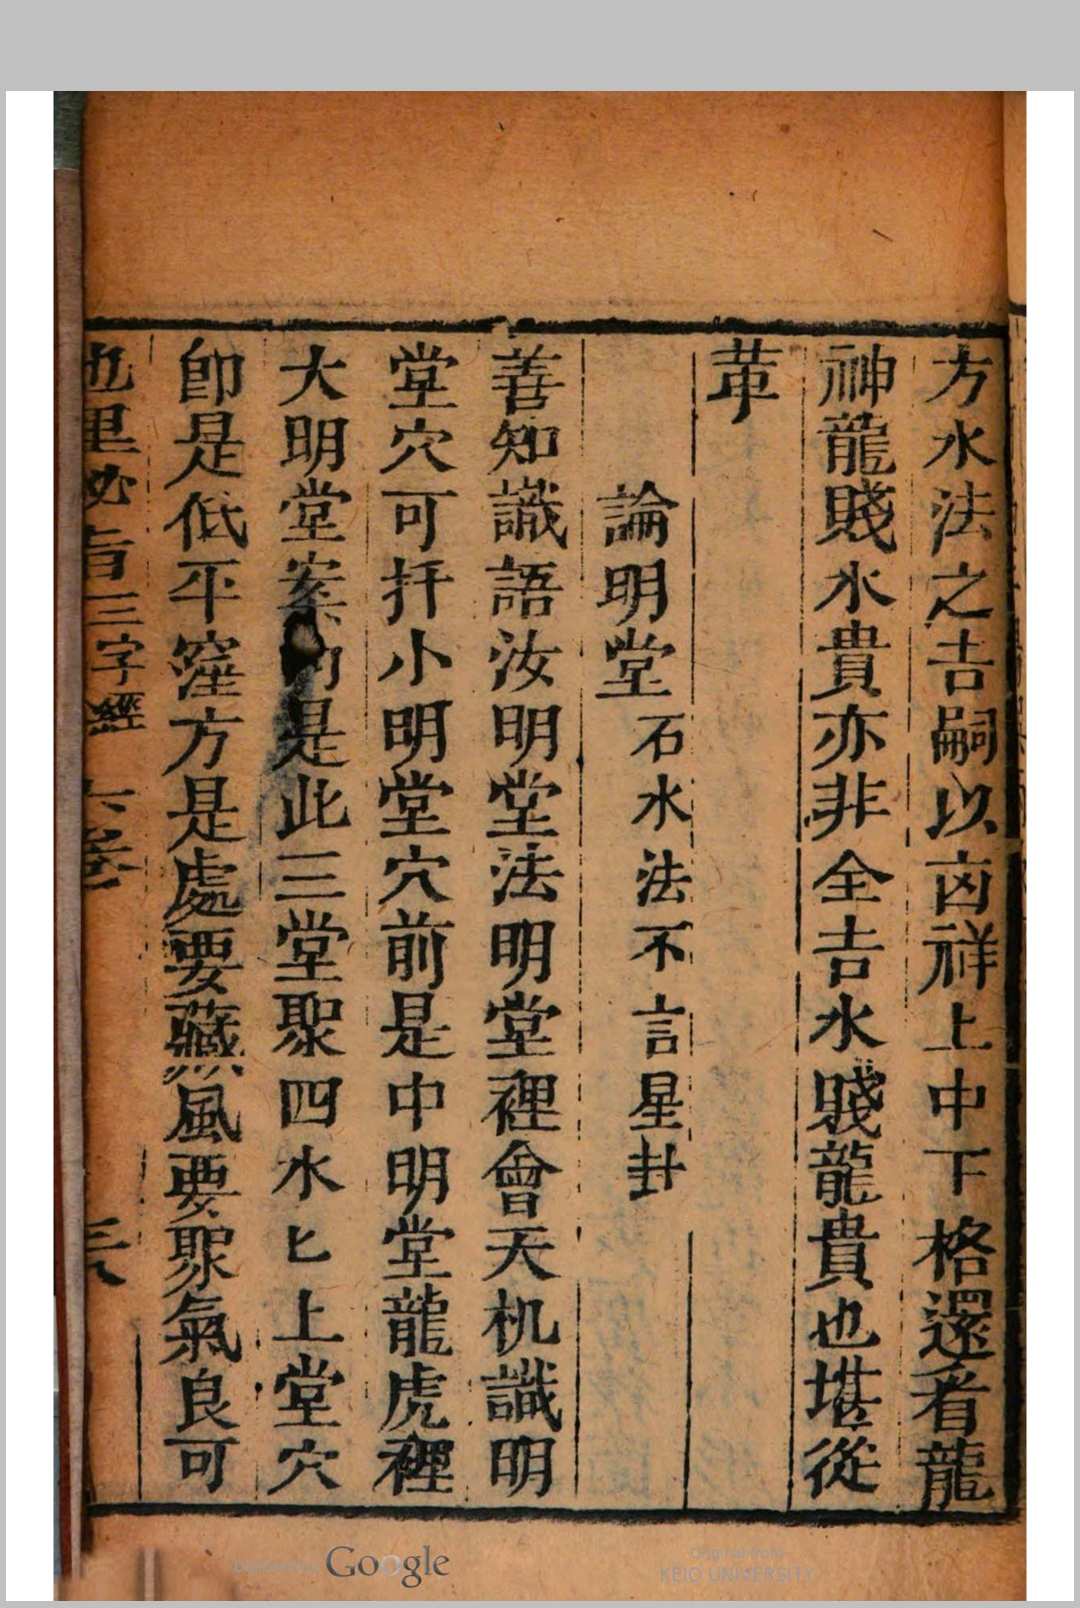 方水法之吉嗣以凶祥上中下格還看龍
神龍賤水貴亦非全吉水賤龍貴也堪從
革
論明堂石水法不言星封
善知識語汝明堂法明堂裡會天机識明
堂穴可扦小明堂穴前是中明堂龍虎裡
大明堂案內是此三堂聚四水匕上堂穴
卽是低平窪方是處要藏風要聚氣良可
地里必旨三字經 六卷 三八
Google
Original from
KEIO UNIVERSITY